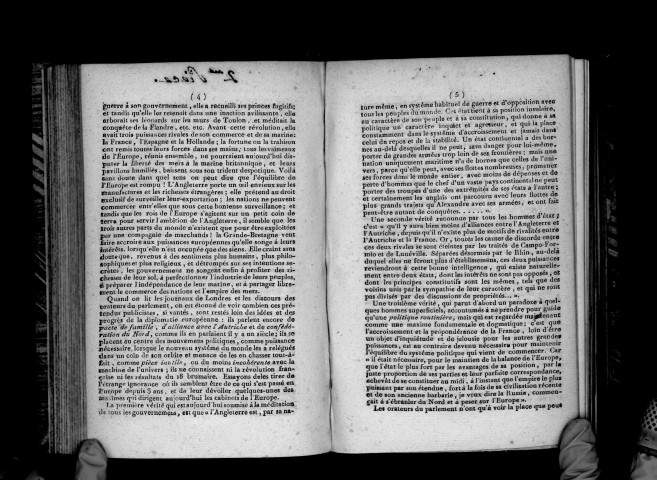 2me Pièce.
( 4 )
guerre à son gouvernement, elle a recueilli ses princes fugitifs;
et tandis qu'elle les retenait dans une inaction avilissante, elle
arborait ses léopards sur les murs de Toulon, et méditait la
conquête de la Flandre, etc. etc. Avant cette révolution, elle
avait trois puissances rivales de son commerce et de sa marine:
la France, l'Espagne et la Hollande; la fortune ou la trahison
ont remis toutes leurs forces dans ses mains; tous les vaisseaux
de l'Europe, réunis ensemble, ne pourraient aujourd'hui dis-
puter la liberté des mers à la marine britannique, et leurs
pavillons humiliés, baissent sous son trident despotique. Voilà
sans doute dans quel sens on peut dire que l'équilibre de
l'Europe est rompu! L'Angleterre porte un œil envieux sur les
manufactures et les richesses étrangères; elle prétend au droit
exclusif de surveiller leur exportation; les nations ne peuvent
commercer entr'elles que sous cette honteuse surveillance; et
tandis que les rois de l'Europe s'agitent sur un petit coin de
terre pour servir l'ambition de l'Angleterre, il semble que les
trois autres parts du monde n'existent que pour être exploitées
par une compagnie de marchands! la Grande-Bretagne veut
faire accroire aux puissances européennes qu'elle songe à leurs
intérêts, lorsqu'elle n'est occupée que des siens. Elle craint sans
doute que, revenus à des sentimens plus humains, plus philo-
sophiques et plus religieux, et détrompés sur ses intentions se-
crètes, les gouvernemens ne songent enfin à profiter des ri-
chesses de leur sol, à perfectionner l'industrie de leurs peuples,
à préparer l'indépendance de leur marine, et à partager libre-
ment le commerce des nations et l'empire des mers.
Quand on lit les journaux de Londres et les discours des
orateurs du parlement, on est étonné de voir combien ces pré-
tendus publicistes, si vantés, sont restés loin des idées et des
progrès de la diplomatie européenne: ils parlent encore de
pacte de famille, d'alliance avec l'Autriche et de confédé-
ration du Nord, comme ils en parlaient il y a un siècle; ils se
placent au centre des mouvemens politiques, comme puissance
nécessaire, lorsque le nouveau système du monde les a relégués
dans un coin de son orbite et menace de les en chasser tout-à-
fait, comme pièce inutile, ou du moins incohérente avec la
machine de l'univers; ils ne connaissent ni la révolution fran-
çaise ni les résultats du 18 brumaire. Essayons de les tirer de
l'étrange ignorance où ils semblent être de ce qui s'est passé en
Europe depuis 3 ans, et de leur dévoiler quelques-unes des
maximes qui dirigent aujourd'hui les cabinets de l'Europe.
La première vérité qui est aujourd'hui soumise à la méditation
de tous les gouvernemens, est que « l'Angleterre est, par sa na-
( 5 )
ture même, en système habituel de guerre et d'opposition avec
tous les peuples du monde. Cet état tient à sa position insulaire,
au caractère de son peuple et à sa constitution, qui donne à sa
politique un caractère inquiet et agresseur, et qui la place
constamment dans le système d'accroissement et jamais dans
celui du repos et de la stabilité. Un état continental a des bor-
nes au-delà desquelles il ne peut, sans danger pour lui-même,
porter de grandes armées trop loin de ses frontières; mais une
nation uniquement maritime n'a de bornes que celles de l'uni-
vers, parce qu'elle peut, avec ses flottes nombreuses, promener
ses forces dans le monde entier, avec moins de dépenses et de
perte d'hommes que le chef d'un vaste pays continental ne peut
porter des troupes d'une des extrémités de ses états à l'autre;
et certainement les anglais ont parcouru avec leurs flottes de
plus grands trajets qu'Alexandre avec ses armées, et ont fait
peut-être autant de conquêtes. . . . . . ».
Une seconde vérité reconnue par tous les hommes d'état;
c'est « qu'il y aura bien moins d'alliance entre l'Angleterre et
l'Autriche, depuis qu'il n'existe plus de motifs de rivalités entre
l'Autriche et la France. Or, toutes les causes de discorde entre
ces deux rivales se sont éteintes par les traités de Campo-For-
mio et de Lunéville. Séparées désormais par le Rhin, au-delà
duquel elles ne feront plus d'établissemens, ces deux puissances
reviendront à cette bonne intelligence, qui existe naturelle-
ment entre deux états, dont les intérêts ne sont pas opposés, et
dont les principes constitutifs sont les mêmes, tels que des
voisins unis par la sympathie de leur caractère, et qui ne sont
pas divisés par des discussions de propriétés... ».
Une troisième vérité, qui paraît d'abord un paradoxe à quel-
ques hommes superficiels, accoutumés à ne prendre pour guide
qu'une politique routinière, mais qui est regardée maintenant
comme une maxime fondamentale et dogmatique; c'est que
l'accroissement et la prépondérance de la France, loin d'être
un objet d'inquiétude et de jalousie pour les autres grandes
puissances, est au contraire devenu nécessaire pour maintenir
l'équilibre du système politique qui vient de commencer. Car
« il était nécessaire, pour le maintien de la balance de l'Europe,
que l'état le plus fort par les avantages de sa position, par la
juste proportion de ses parties et leur parfaite correspondance,
achevât de se constituer au midi, à l'instant que l'empire le plus
puissant par son étendue, fort à la fois de sa civilisation récente
et de son ancienne barbarie, je veux dire la Russie, commen-
çait à s'ébranler du Nord et à peser sur l'Europe ».
Les orateurs du parlement n'ont qu'à voir la place que peut